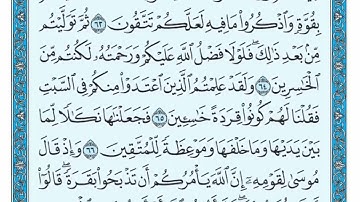 بِقُوَّةٍ وَاذْكُرُوا مَا فِيهِ لَعَلَّكُمْ تَتَّقُونَ ٦٣ ثُمَّ تَوَلَّيْتُم
مِّنۢ بَعْدِ ذَٰلِكَ ۖ فَلَوْلَا فَضْلُ اللَّهِ عَلَيْكُمْ وَرَحْمَتُهُ لَكُنتُم مِّنَ
الْخَاسِرِينَ ٦٤ وَلَقَدْ عَلِمْتُمُ الَّذِينَ اعْتَدَوْا مِنكُمْ فِي السَّبْتِ
فَقُلْنَا لَهُمْ كُونُوا قِرَدَةً خَاسِئِينَ ٦٥ فَجَعَلْنَاهَا نَكَالًا لِّمَا
بَيْنَ يَدَيْهَا وَمَا خَلْفَهَا وَمَوْعِظَةً لِّلْمُتَّقِينَ ٦٦ وَإِذْ قَالَ
مُوسَىٰ لِقَوْمِهِ إِنَّ اللَّهَ يَأْمُرُكُمْ أَن تَذْبَحُوا بَقَرَةً ۖ قَالُوا